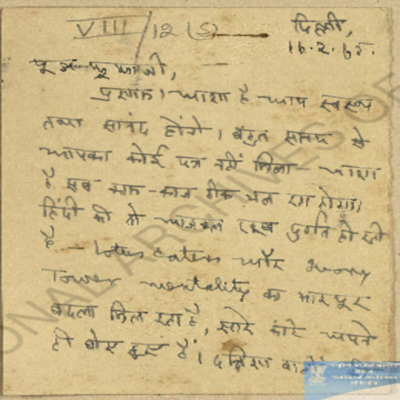 VIII/12(S)
दिल्ली,
16.2.65.
प्रणाम। आशा है आप स्वस्थ
तथा सानंद होंगे। बहुत समय से
आपका कोई पत्र नहीं मिला - आशा
है सब काम-काज ठीक चल रहा होगा।
हिंदी की तो आजकल दुर्गति हो रही
है - Lotus Eaters और Ivory
Tower mentality का भरपूर
बदला मिल रहा है, सारे अपने
ही हैं।